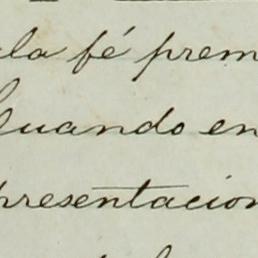 la fé prem
Cuando en
presentacion